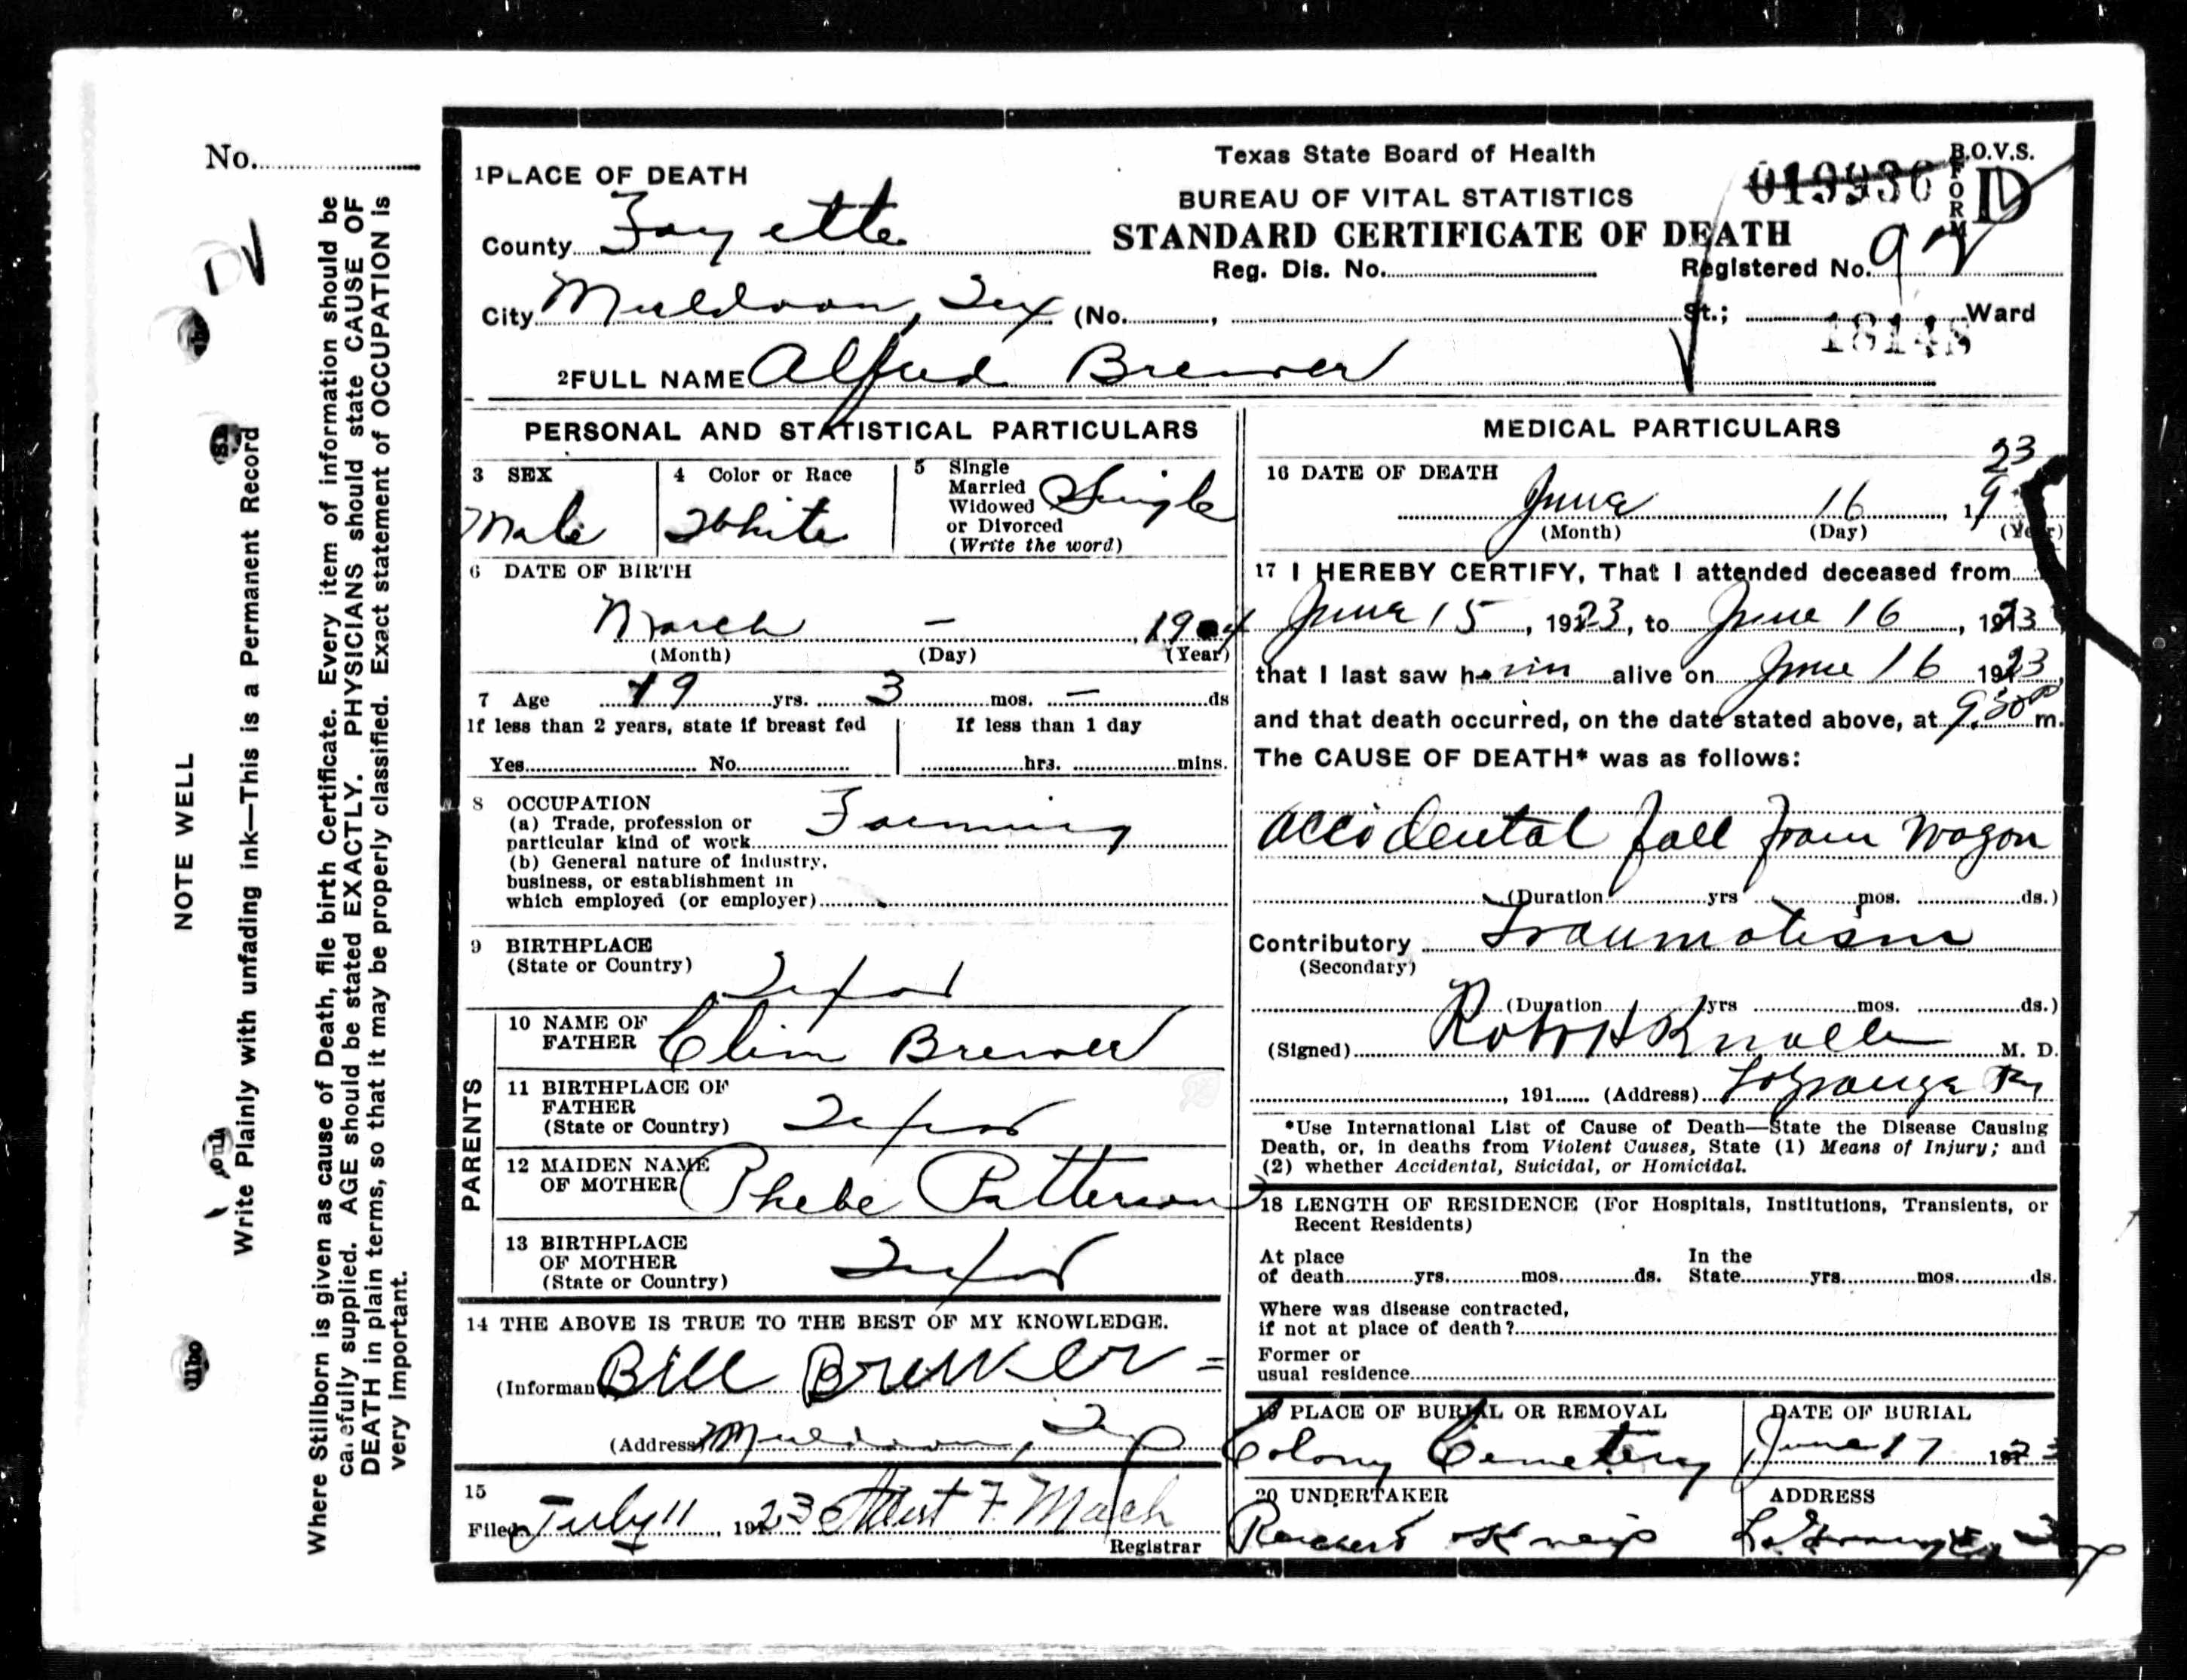 No.
NOTE WELL
Write Plainly with unfading ink—This is a Permanent Record
Where Stillborn is given as cause of Death, file birth Certificate. Every item of information should be
carefully supplied. AGE should be stated EXACTLY. PHYSICIANS should state CAUSE OF
DEATH in plain terms, so that it may be properly classified. Exact statement of OCCUPATION is
very important.
Texas State Board of Health
BUREAU OF VITAL STATISTICS
STANDARD CERTIFICATE OF DEATH
B.O.V.S.
FORM D
019936
1 PLACE OF DEATH
County Fayette
Reg. Dis. No. Registered No. 92
City Muldoon, Tex (No. , St.; Ward
18148
2 FULL NAME Alfred Brewer
PERSONAL AND STATISTICAL PARTICULARS
3 SEX
Male
4 Color or Race
White
5 Single
Married
Widowed
or Divorced
(Write the word)
Single
6 DATE OF BIRTH
March - 1904
(Month) (Day) (Year)
7 Age 19 yrs. 3 mos. - ds
If less than 2 years, state if breast fed
Yes No
If less than 1 day
hrs. mins.
8 OCCUPATION
(a) Trade, profession or
particular kind of work Farming
(b) General nature of industry,
business, or establishment in
which employed (or employer)
9 BIRTHPLACE
(State or Country) Texas
PARENTS
10 NAME OF
FATHER Clim Brewer
11 BIRTHPLACE OF
FATHER
(State or Country) Texas
12 MAIDEN NAME
OF MOTHER Phebe Patterson
13 BIRTHPLACE
OF MOTHER
(State or Country) Texas
14 THE ABOVE IS TRUE TO THE BEST OF MY KNOWLEDGE.
(Informant) Bill Brewer
(Address) Muldoon, Tex
15
Filed July 11, 1923 F. Mach
Registrar
MEDICAL PARTICULARS
16 DATE OF DEATH
June 16, 1923
(Month) (Day) (Year)
17 I HEREBY CERTIFY, That I attended deceased from
June 15, 1923, to June 16, 1923
that I last saw him alive on June 16 1923,
and that death occurred, on the date stated above, at 9:30 P m.
The CAUSE OF DEATH* was as follows:
accidental fall from wagon
(Duration yrs mos. ds.)
Contributory Traumatism
(Secondary)
(Duration yrs mos. ds.)
(Signed) Robt H Knolle M. D.
, 191 (Address) LaGrange Tex
*Use International List of Cause of Death—State the Disease Causing
Death, or, in deaths from Violent Causes, State (1) Means of Injury; and
(2) whether Accidental, Suicidal, or Homicidal.
18 LENGTH OF RESIDENCE (For Hospitals, Institutions, Transients, or
Recent Residents)
At place
of death yrs. mos. ds.
In the
State yrs. mos. ds.
Where was disease contracted,
if not at place of death?
Former or
usual residence
19 PLACE OF BURIAL OR REMOVAL
Colony Cemetery
DATE OF BURIAL
June 17 1923
20 UNDERTAKER
Kneip
ADDRESS
LaGrange, Tex